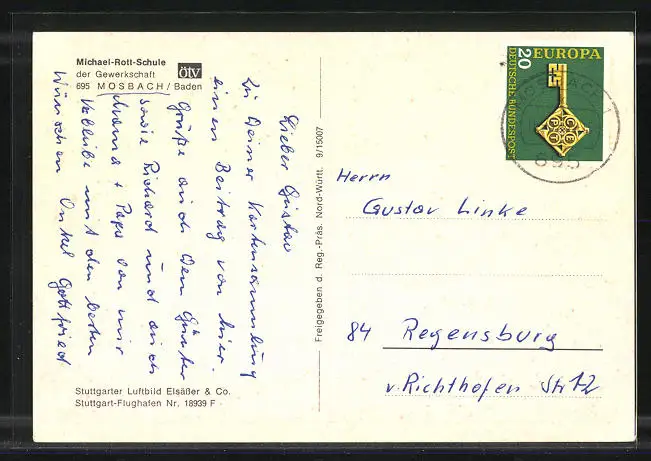 Michael-Rott-Schule
der Gewerkschaft ötv
695 MOSBACH / Baden
Lieber Gustav
Zu Deiner Kartensammlung
einen Beitrag von hier.
Grüße auch dem Günter
sowie Richard und auch
Mama + Papa von mir
Verbleibe mit den besten
Wünschen Onkel Gottfried
Stuttgarter Luftbild Elsäßer & Co.
Stuttgart-Flughafen Nr. 18939 F
Freigegeben d. Reg.-Präs. Nord-Württ. 9/15007
20 EUROPA
DEUTSCHE BUNDESPOST
CEPT
MOSBACH 1
695
Herrn
Gustav Linke
84 Regensburg
v. Richthofen Str 12